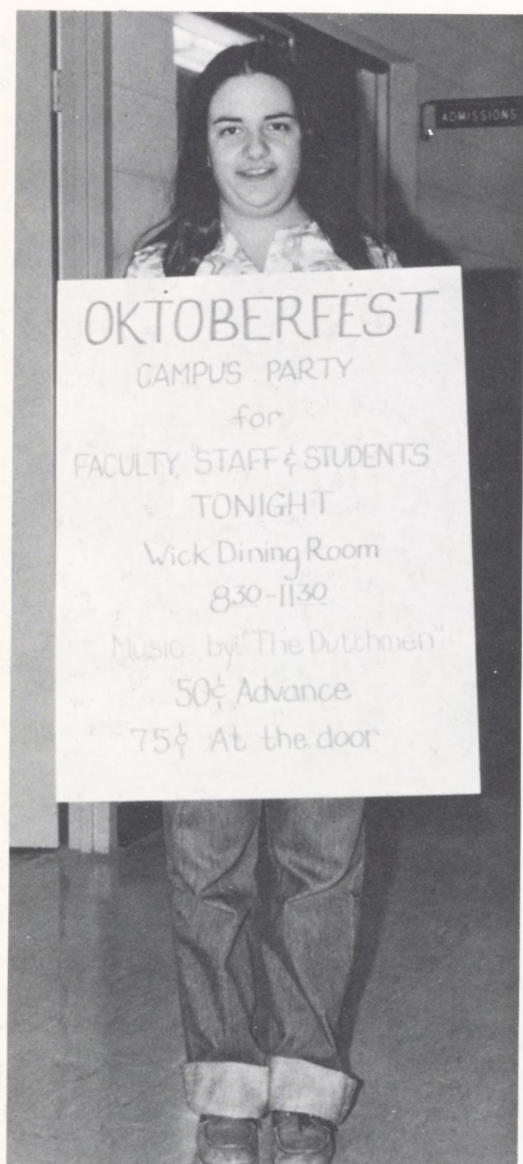 ADMISSIONS
OKTOBERFEST
CAMPUS PARTY
for
FACULTY, STAFF & STUDENTS
TONIGHT
Wick Dining Room
830-1130
Music by: "The Dutchmen"
50¢ Advance
75¢ At the door